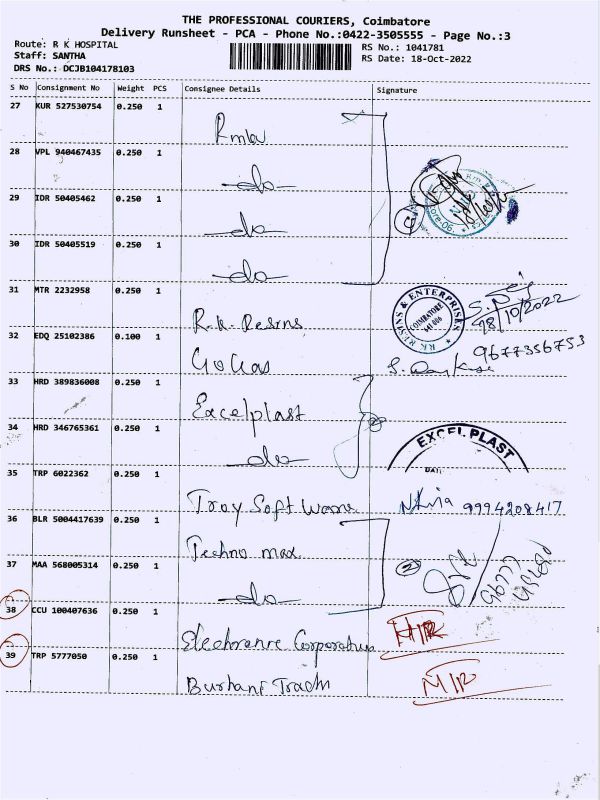 THE PROFESSIONAL COURIERS, Coimbatore
Delivery Runsheet - PCA - Phone No.:0422-3505555 - Page No.:3
Route: R K HOSPITAL
Staff: SANTHA
DRS No.: DCJB104178103
RS No.: 1041781
RS Date: 18-Oct-2022
S No Consignment No Weight PCS Consignee Details Signature
27 KUR 527530754 0.250 1
28 VPL 940467435 0.250 1 -do-
29 IDR 50405462 0.250 1 -do-
30 IDR 50405519 0.250 1 -do-
31 MTR 2232958 0.250 1 R.K. Resins
RK RESINS & ENTERPRISES
COIMBATORE
641 006
18/10/2022
32 EDQ 25102386 0.100 1 GoGas 9677356753
33 HRD 389836008 0.250 1 Excelplast
34 HRD 346765361 0.250 1 -do-
EXCEL PLAST
DATE
35 TRP 6022362 0.250 1 Troy Soft 9994208417
36 BLR 5004417639 0.250 1 Techno max
37 MAA 568005314 0.250 1 -do- 2
38 CCU 100407636 0.250 1 Corporation
39 TRP 5777050 0.250 1 Burhani